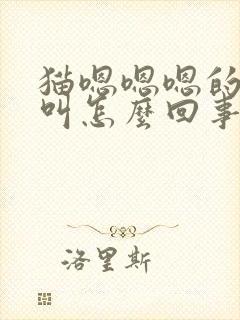 猫嗯嗯嗯的
叫怎麽回事
洛里斯